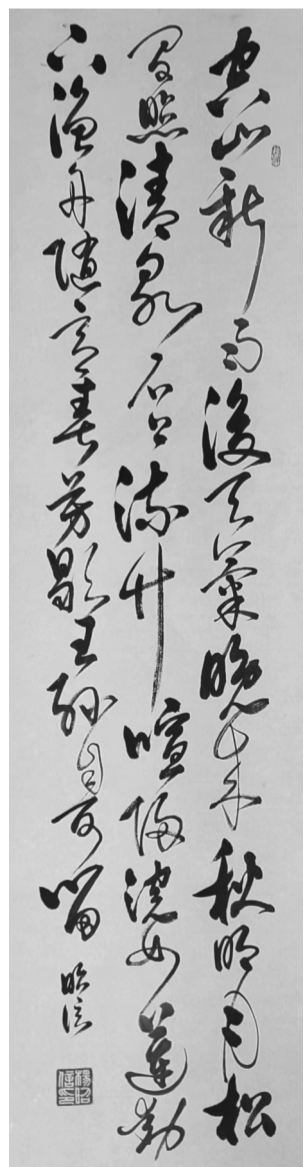 空山新雨後天氣晚來秋明月松
間照清泉石上流竹喧歸浣女蓮動
下漁舟隨意春芳歇王孫自可留 昭信